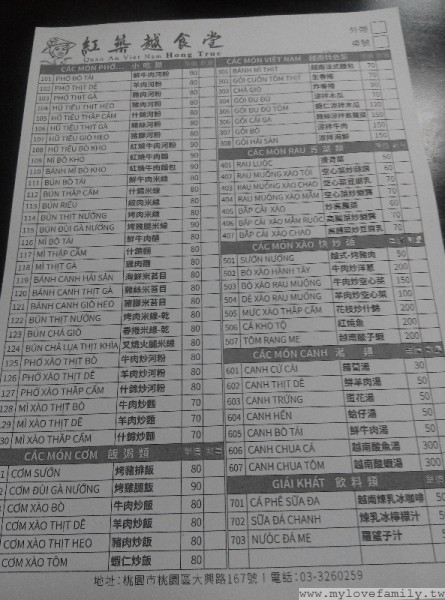 紅築越食堂
Quan An Viet Nam Hong Truc
外帶
桌號
CÁC MÓN PHỞ... 小吃類
101 PHỞ BÒ TÁI 鮮牛肉河粉 80
102 PHỞ THỊT DÊ 羊肉河粉 80
103 PHỞ THỊT GÀ 雞肉河粉 80
HỦ TIẾU THỊT HEO 豬肉河粉 80
HỦ TIẾU THẬP CẨM 什錦河粉 80
HỦ TIẾU GIÒ HEO 豬腳河粉
108 HỦ TIẾU BÒ KHO 紅燒牛肉河粉 90
109 MÌ BÒ KHO 紅燒牛肉麵 90
110 BÁNH MÌ BÒ KHO 紅燒牛肉麵包 90
111 BÚN BÒ TÁI 鮮牛肉米線 80
112 BÚN THẬP CẨM 什錦米線 80
113 BÚN RIÊU 蟹肉米線 80
114 BÚN THỊT NƯỚNG 烤肉米線 80
115 BÚN ĐÙI GÀ NƯỚNG 烤雞腿米線 90
116 MÌ BÒ TÁI 鮮牛肉麵 80
117 MÌ THẬP CẨM 什錦麵 80
118 MÌ THỊT GÀ 雞肉麵 80
119 BÁNH CANH HẢI SẢN 海鮮米苔目 80
120 BÁNH CANH THỊT GÀ 雞絲米苔目 80
121 BÁNH CANH GIÒ HEO 豬腳米苔目 80
122 BÚN THỊT NƯỚNG 烤肉米線-乾 80
123 BÚN CHẢ GIÒ 春捲米線-乾 80
124 BÚN CHẢ LỤA THỊT KHÌA 叉燒火腿米線 80
125 PHỞ XÀO THỊT BÒ 牛肉炒河粉 80
126 PHỞ XÀO THỊT DÊ 羊肉炒河粉 80
127 PHỞ XÀO THẬP CẨM 什錦炒河粉 80
128 MÌ XÀO THỊT BÒ 牛肉炒麵 70
29 MÌ XÀO THỊT DÊ 羊肉炒麵 70
30 MÌ XÀO THẬP CẨM 什錦炒麵 70
CÁC MÓN CƠM 飯粥類 單價
CƠM SƯỜN 烤豬排飯 80
CƠM ĐÙI GÀ NƯỚNG 烤雞腿飯 90
CƠM XÀO THỊT BÒ 牛肉炒飯 80
CƠM XÀO THỊT DÊ 羊肉炒飯 80
CƠM XÀO THỊT HEO 豬肉炒飯 80
CƠM XÀO TÔM 蝦仁炒飯 80
CÁC MÓN VIỆT NAM 越南特色菜
301 BÁNH MÌ THỊT 越南法式麵包 70
302 GỎI CUỐN TÔM THỊT 生春捲
303 CHẢ GIÒ 炸春捲
304 GỎI ĐU ĐỦ 涼拌木瓜 70
306 GỎI CÁI GÀ
307 GỎI BÒ 涼拌牛肉
308 GỎI HẢI SẢN 涼拌海鮮 150
CÁC MÓN RAU 青菜類
401 RAU LUỘC 燙青菜
402 RAU MUỐNG XÀO TỎI
403 RAU MUỐNG XÀO CHAO
404 RAU MUỐNG XÀO MẮM RUỐC
405 BẮP CẢI XÀO 炒高麗菜 60
406 BẮP CẢI XÀO MẮM RUỐC
407 BẮP CẢI XÀO CHAO 高麗菜炒豆腐乳 70
CÁC MÓN XÀO 快炒類
501 SƯỜN NƯỚNG 越式-烤豬腩 50
502 BÒ XÀO HÀNH TÂY 牛肉炒洋蔥 200
503 BÒ XÀO RAU MUỐNG 牛肉炒空心菜 150
504 DÊ XÀO RAU MUỐNG 羊肉炒空心菜 150
505 MỰC XÀO THẬP CẨM 花枝炒什錦 200
506 CÁ KHO TỘ 紅燒魚 200
507 TÔM RANG ME 越南酸子蝦 200
CÁC MÓN CANH 湯 類
601 CANH CỦ CẢI 蘿蔔湯 30
602 CANH THỊT DÊ 鮮羊肉湯 50
603 CANH TRỨNG 蛋花湯 50
604 CANH HẾN 蛤仔湯 50
605 CANH BÒ TÁI 鮮牛肉湯 50
606 CANH CHUA CÁ 越南酸魚湯 300
607 CANH CHUA TÔM 越南酸蝦湯 300
GIẢI KHÁT 飲料類
701 CÀ PHÊ SỮA ĐÁ 越南煉乳冰咖啡
702 SỮA ĐÁ CHANH 煉乳檸檬汁 50
703 NƯỚC ĐÁ ME 羅望子汁
地址:桃園市桃園區大興路167號 | 電話:03-3260259
www.mylovefamily.tw